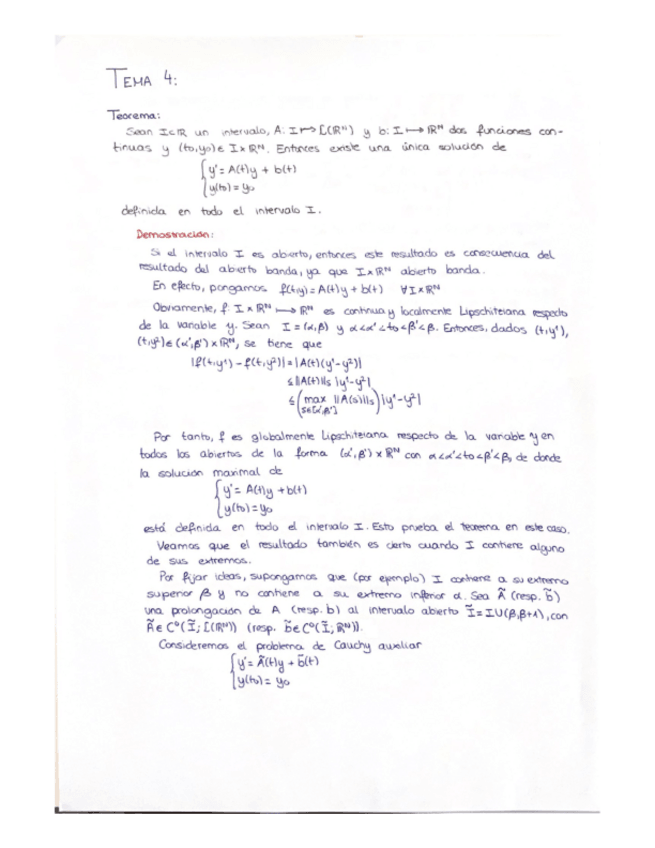 TEMA 4:
Teorema:
Sean I⊂ℝ un intervalo, A: I ↦ L(ℝᴺ) y b: I ↦ ℝᴺ dos funciones con-
tinuas y (t₀,y₀) ∈ I x ℝᴺ. Entonces existe una única solución de
{ y' = A(t)y + b(t)
y(t₀) = y₀
definida en todo el intervalo I.
Demostración:
Si el intervalo I es abierto, entonces este resultado es consecuencia del
resultado del abierto banda, ya que I x ℝᴺ abierto banda.
En efecto, pongamos f(t,y) = A(t)y + b(t) ∀ I x ℝᴺ
Obviamente, f: I x ℝᴺ ↦ ℝᴺ es continua y localmente Lipschiteiana respecto
de la variable y. Sean I = (α,β) y α<α'<t₀<β'<β. Entonces, dados (t,y¹),
(t,y²) ∈ (α',β') x ℝᴺ, se tiene que
|f(t,y¹) - f(t,y²)| = |A(t)(y¹-y²)|
≤ ||A(t)||s |y¹-y²|
≤ (max ||A(s)||s) |y¹-y²|
s∈[α',β']
Por tanto, f es globalmente Lipschiteiana respecto de la variable y en
todos los abiertos de la forma (α',β') x ℝᴺ con α<α'<t₀<β'<β, de donde
la solución maximal de
{ y' = A(t)y + b(t)
y(t₀) = y₀
está definida en todo el intervalo I. Esto prueba el teorema en este caso.
Veamos que el resultado también es cierto cuando I contiene alguno
de sus extremos.
Por fijar ideas, supongamos que (por ejemplo) I contiene a su extremo
superior β y no contiene a su extremo inferior α. Sea Ã (resp. b̃)
una prolongación de A (resp. b) al intervalo abierto Ĩ = I∪(β,β+1), con
Ã ∈ C⁰(Ĩ; L(ℝᴺ)) (resp. b̃ ∈ C⁰(Ĩ; ℝᴺ)).
Consideremos el problema de Cauchy auxiliar
{ y' = Ã(t)y + b̃(t)
y(t₀) = y₀